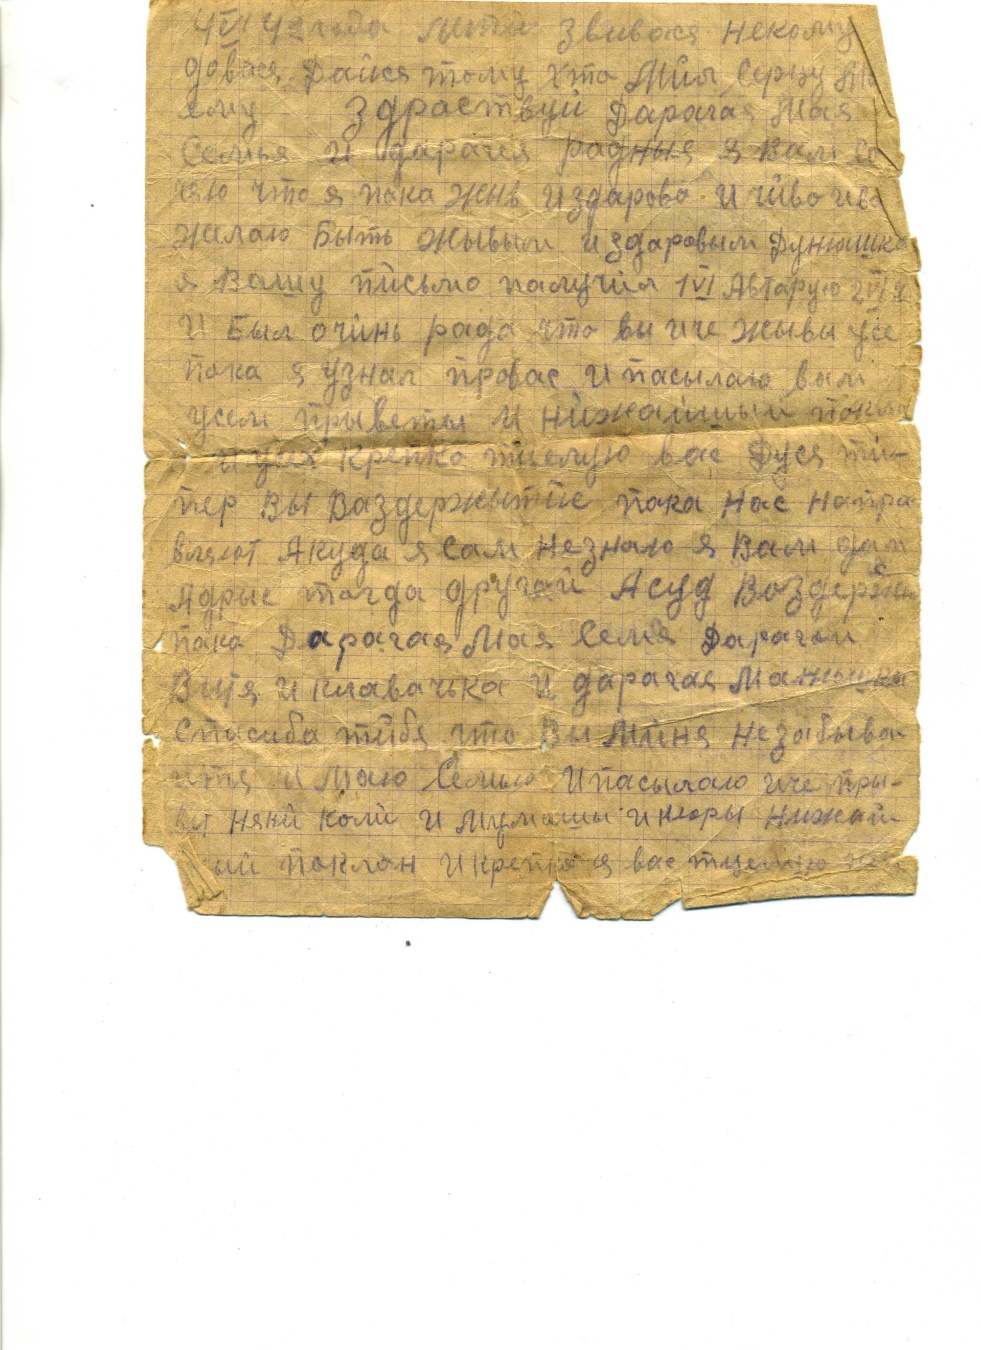 4 VI 42 года лити звивайся некому
давайся Дайся тому хто Мил Серцу Ма
ему Здраствуй Дарагая Мая
Семья И дарагея радныя я Вам со
чяю что я пака жыв издарово И чиво ива
жилаю Быть жывым издаровым Дунюшка
я Вашу письмо палучил 1 VI Автарую 2 VI
И Был очинь рада что вы иче жывы усе
пока я узнал провас Ипасылаю вам
усем прыветы И нижайшый покло
и усех крепко тцелую вас Дуся ти-
пер Вы Воздержытис пака Нас Напра
вляют Акуда я Сам Незнаю я Вам дам
Адрыс тагда другой Асуд Воздержы
пака Дарагая Мая Семя Дарагой
Витя И Клавачька И дарагая
Спасиба тибя что Вы Миня Незабыва-
итя И Маю Семью Ипасылаю иче пры-
вет няни Коли И И Нюры Нижай-
ый паклон Икрепко я вас тцелую